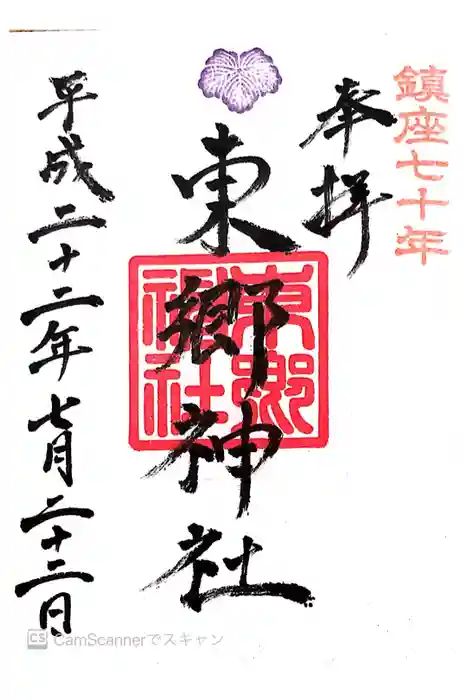 鎮座七十年
奉拝
東郷神社
東郷神社
平成二十二年七月二十二日
CS CamScannerでスキャン